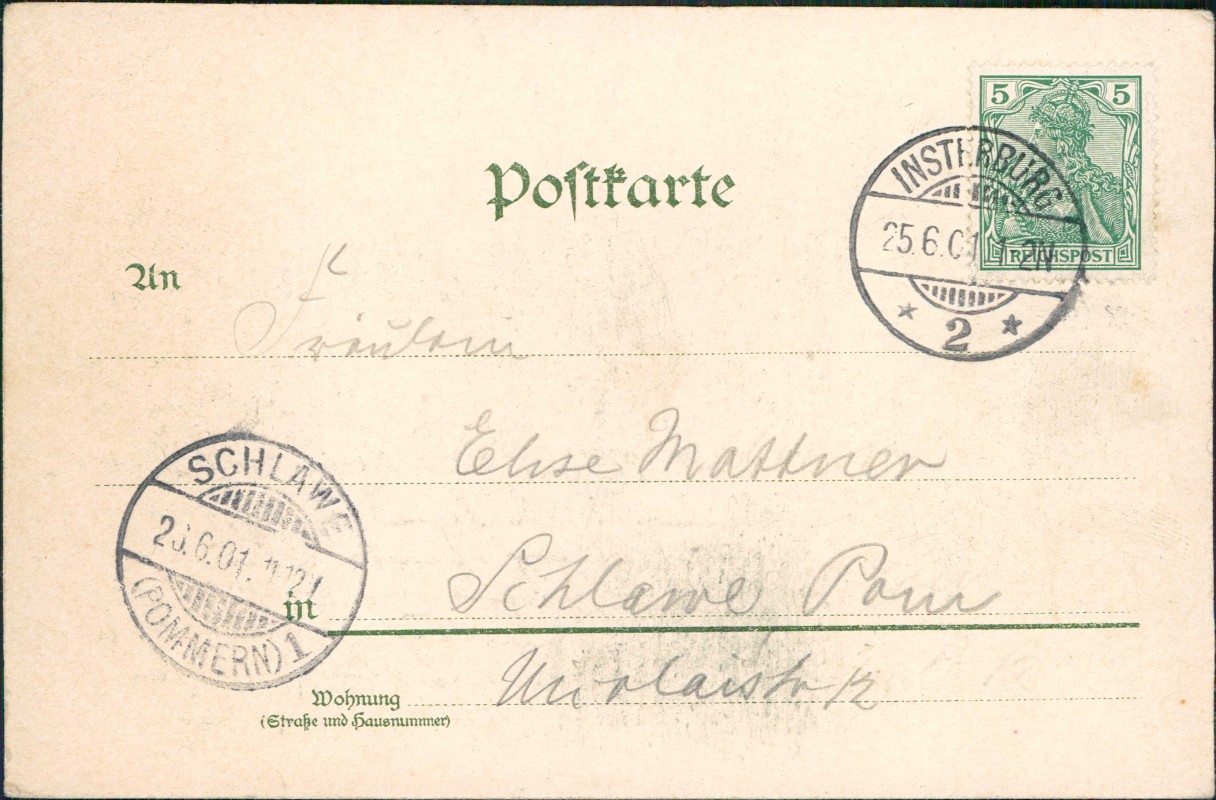 5 5
REICHSPOST
INSTERBURG
25.6.01. 1-2N
* 2 *
Postkarte
An
Fräulein
Elise Mattner
SCHLAWE
6.01.
(POMMERN) 1
in
Schlawe Pom
Wohnung
(Straße und Hausnummer)